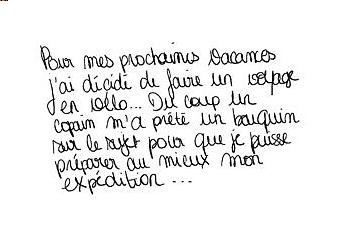 Pour mes prochaines vacances
j'ai décidé de faire un voyage
en vélo... Du coup un
copain m'a prêté un bouquin
sur le sujet pour que je puisse
préparer au mieux mon
expédition...